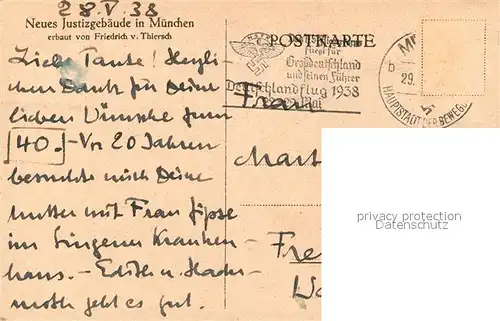 28.V.38
Neues Justizgebäude in München
erbaut von Friedrich v. Thiersch
POSTKARTE
fliegt für
Großdeutschland
und seinen Führer
Deutschlandflug 1938
Mai
b
29.
HAUPTSTADT DER BEWEG
Liebe Tante! Herzli-
chen Dank für Deine
lieben Wünsche zum
40. - Vor 20 Jahren
besuchte mich Deine
Mutter mit Frau
im Singener Kranken-
haus. - Edith u.
geht es gut.
Frau
privacy protection
Datenschutz